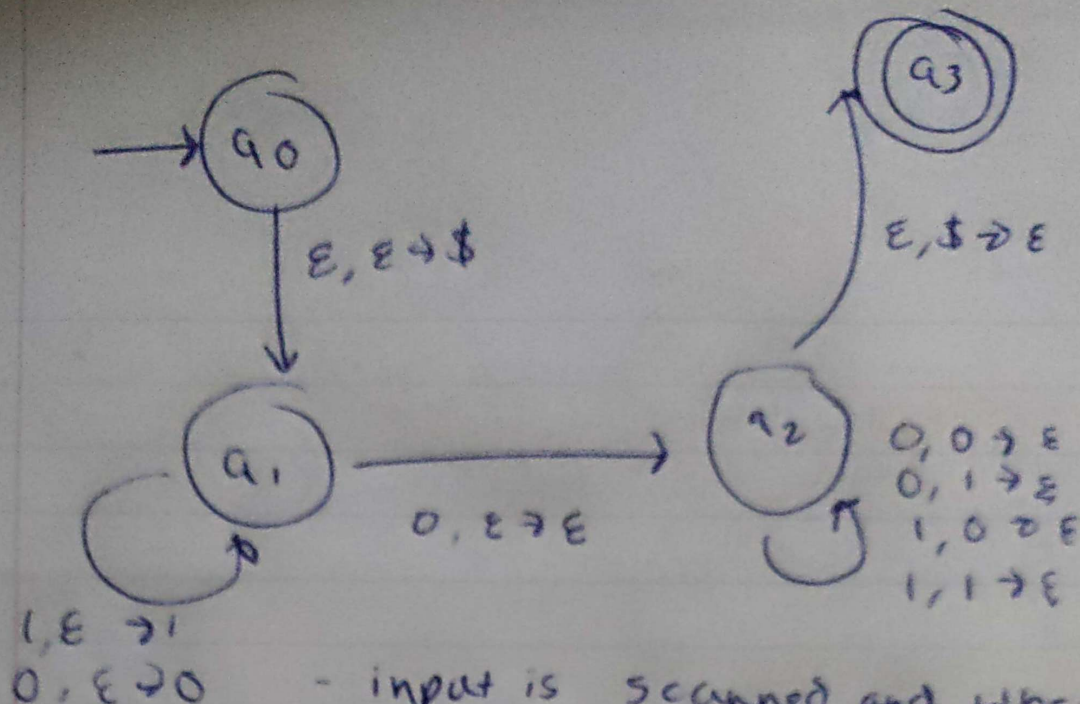 q0
q3
ε, ε → $
ε, $ → ε
q1
q2
0, ε → ε
0, 0 → ε
0, 1 → ε
1, 0 → ε
1, 1 → ε
1, ε → 1
0, ε → 0
- input is scanned and